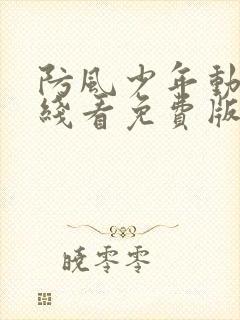 防风少年動
綫看免費版
晓零零